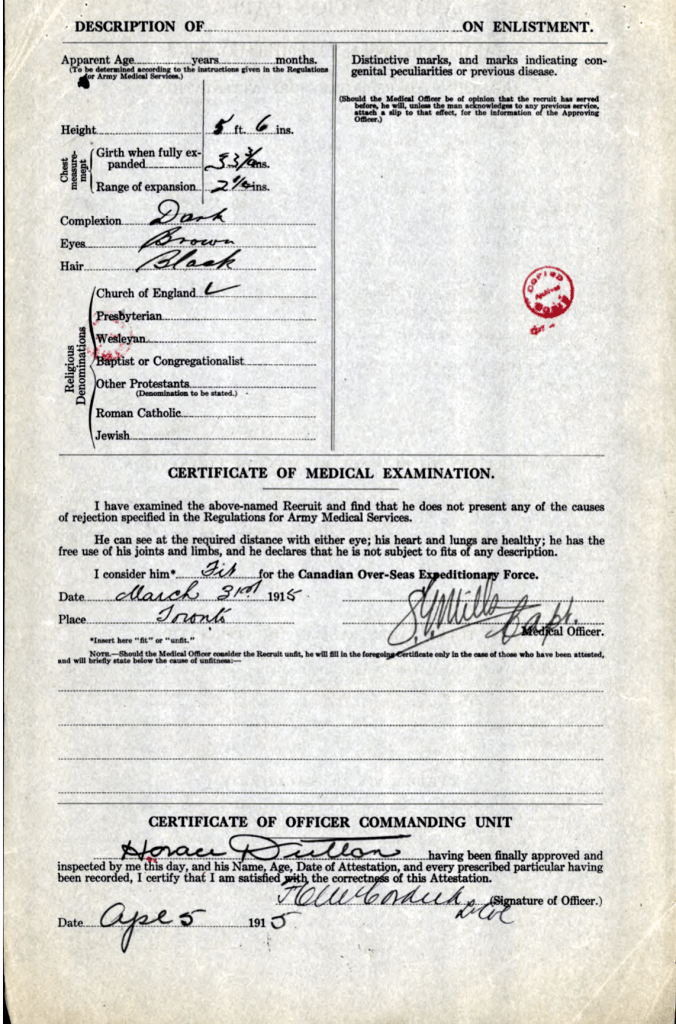 DESCRIPTION OF ON ENLISTMENT.
Apparent Age years months.
(To be determined according to the instructions given in the Regulations
for Army Medical Services.)
Height 5 ft. 6 ins.
Chest measurement
Girth when fully ex-
panded 33 ins.
Range of expansion 2 ins.
Complexion Dark
Eyes Brown
Hair Black
Religious Denominations
Church of England ✓
Presbyterian
Wesleyan
Baptist or Congregationalist
Other Protestants
(Denomination to be stated.)
Roman Catholic
Jewish
Distinctive marks, and marks indicating con-
genital peculiarities or previous disease.
(Should the Medical Officer be of opinion that the recruit has served
before, he will, unless the man acknowledges to any previous service,
attach a slip to that effect, for the information of the Approving
Officer.)
COPIED
CERTIFICATE OF MEDICAL EXAMINATION.
I have examined the above-named Recruit and find that he does not present any of the causes
of rejection specified in the Regulations for Army Medical Services.
He can see at the required distance with either eye; his heart and lungs are healthy; he has the
free use of his joints and limbs, and he declares that he is not subject to fits of any description.
I consider him* Fit for the Canadian Over-Seas Expeditionary Force.
Date March 31st 1915
Place Toronto
Mills Capt.
Medical Officer.
*Insert here "fit" or "unfit."
NOTE.—Should the Medical Officer consider the Recruit unfit, he will fill in the foregoing Certificate only in the case of those who have been attested,
and will briefly state below the cause of unfitness:—
CERTIFICATE OF OFFICER COMMANDING UNIT
Horace Dutton having been finally approved and
inspected by me this day, and his Name, Age, Date of Attestation, and every prescribed particular having
been recorded, I certify that I am satisfied with the correctness of this Attestation.
(Signature of Officer.)
Date 5 1915